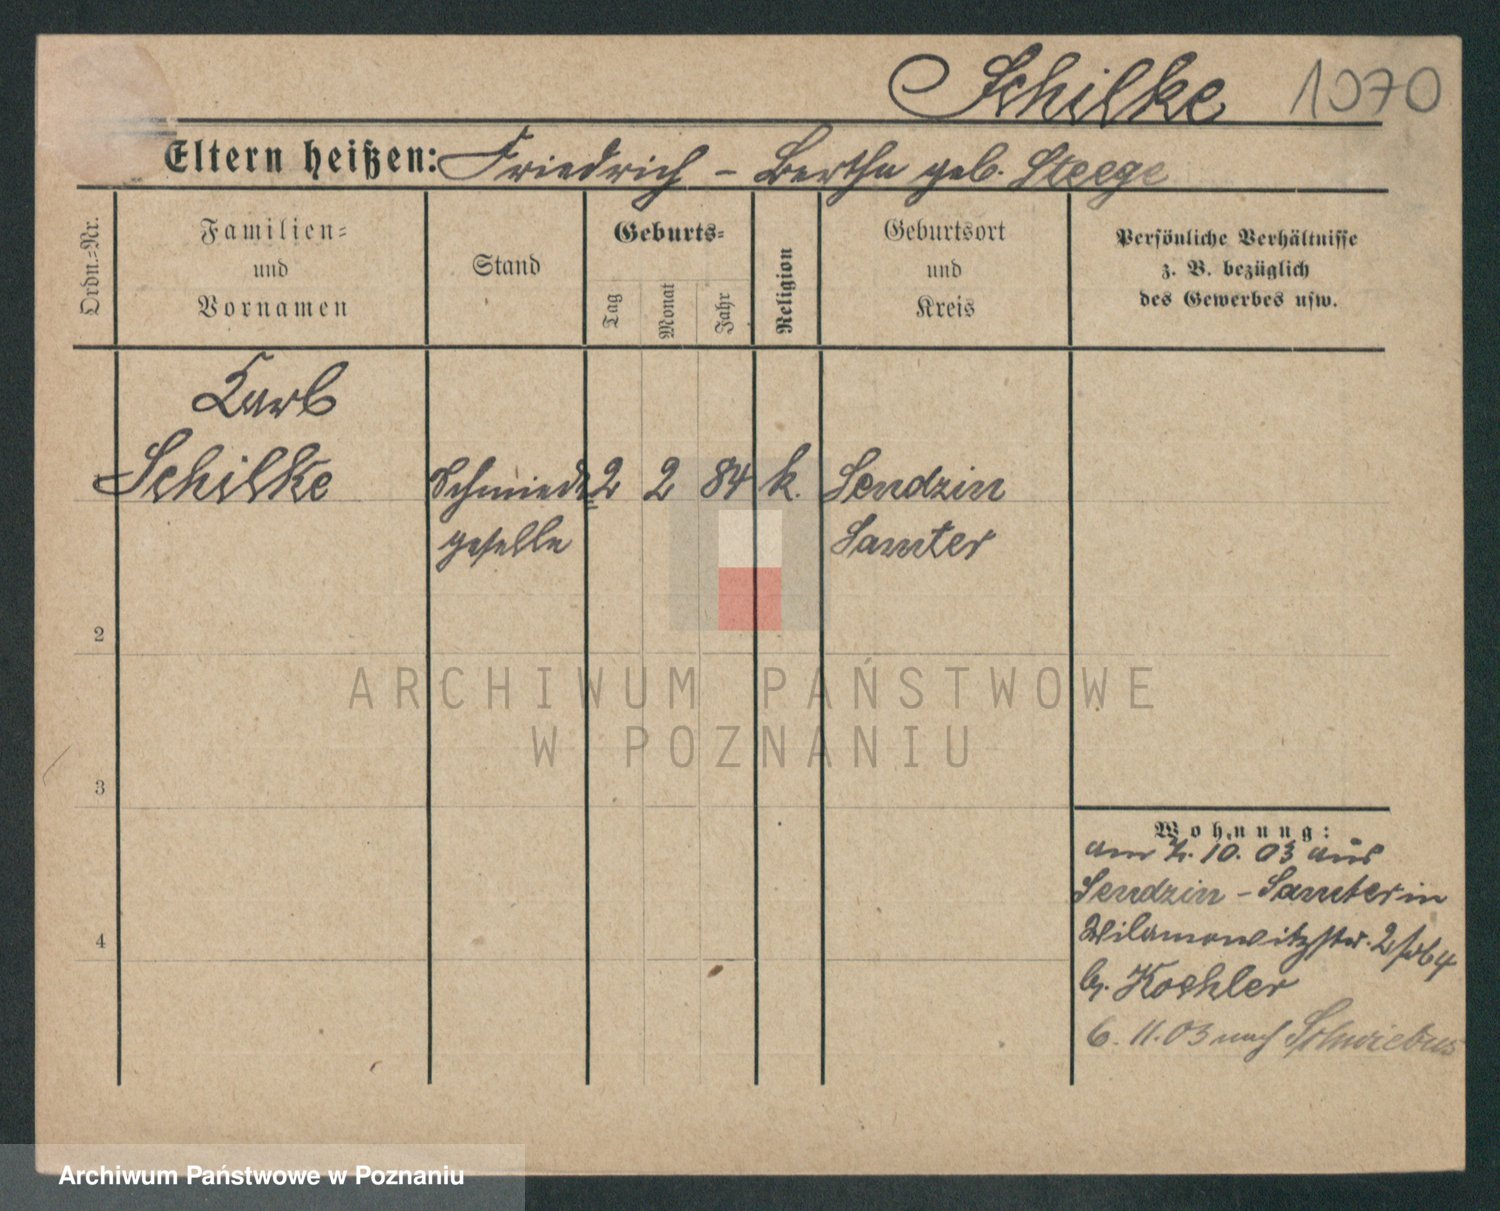 Schilke 1070
Eltern heißen: Friedrich - Bertha geb. Steege
Ordn.-Nr.
Familien-
und
Vornamen
Stand
Geburts-
Tag
Monat
Jahr
Religion
Geburtsort
und
Kreis
Persönliche Verhältnisse
z. B. bezüglich
des Gewerbes usw.
Karl
Schilke Schmiede 2 2 84 k. Sendzin
geselle Samter
2
3
4
Wohnung:
am 7. 10. 03 aus
Sendzin - Samter in
Wilamowitzstr. 2
b. Koehler
6. 11. 03 nach Schwiebus
ARCHIWUM PAŃSTWOWE
W POZNANIU
Archiwum Państwowe w Poznaniu